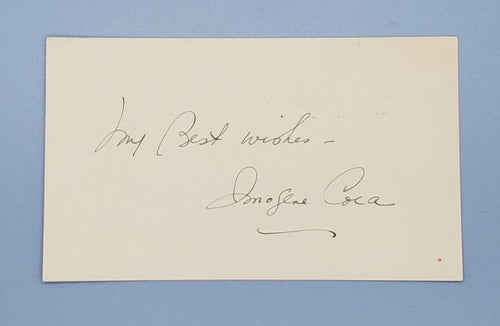 My Best wishes –
Imogene Coca